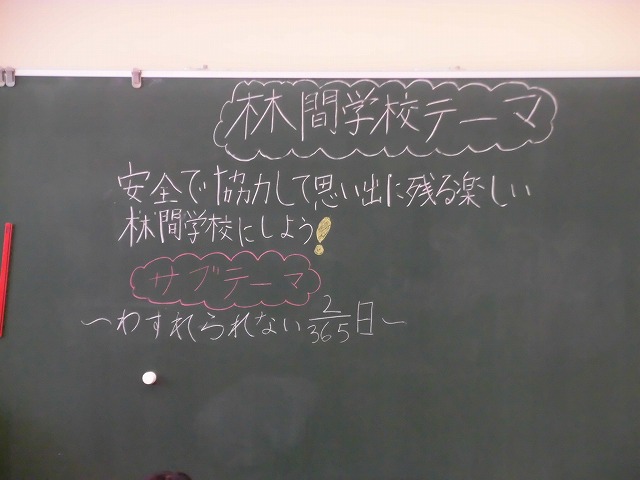 林間学校テーマ
安全で協力して思い出に残る楽しい
林間学校にしよう!
サブテーマ
~わすれられない2/365日~